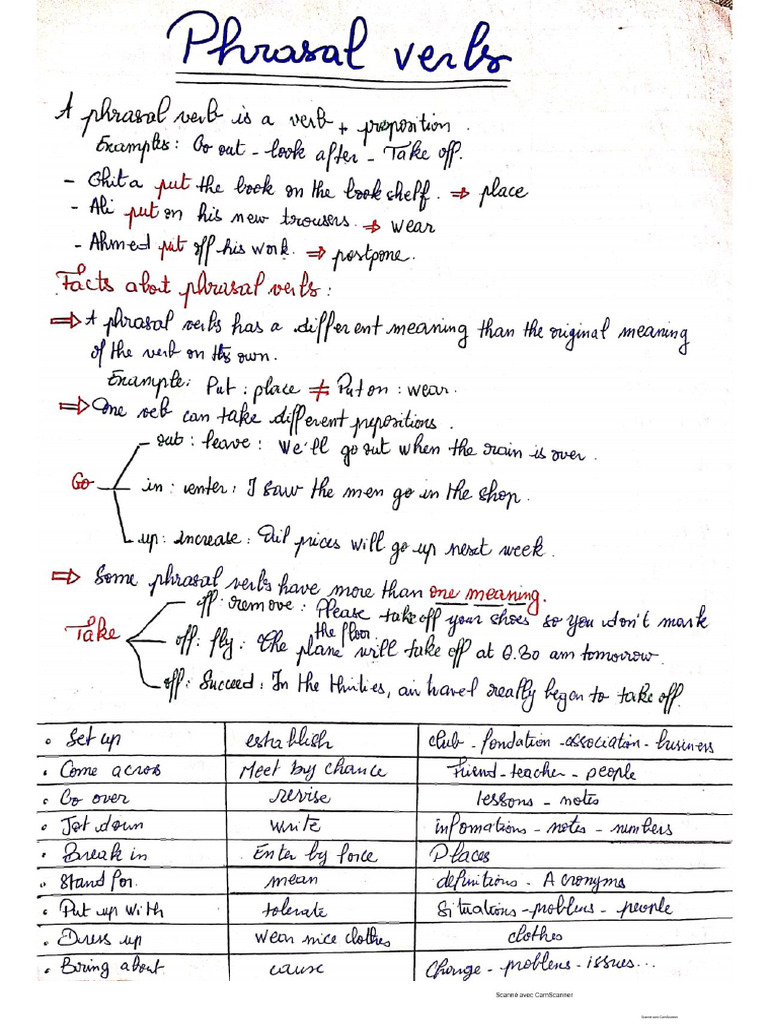 Phrasal verbs
A phrasal verb is a verb + proposition.
Examples: Go out - look after - Take off.
- Ghita put the book on the book shelf. ⇒ place
- Ali put on his new trousers. ⇒ wear
- Ahmed put off his work. ⇒ postpone.
Facts about phrasal verbs:
⇒ A phrasal verbs has a different meaning than the original meaning
of the verb on its own.
Example: Put : place ≠ Put on : wear.
⇒ One veb can take different prepositions.
out : leave : We'll go out when the rain is over.
Go in : enter : I saw the men go in the shop.
up : increase : Oil prices will go up next week.
⇒ Some phrasal verbs have more than one meaning.
off : remove : Please take off your shoes so you don't mark
the floor.
Take off : fly : the plane will take off at 8.30 am tomorrow.
off : Succeed : In the thirties, air travel really began to take off.
• Set up establish club - fondation - association - business
• Come across Meet by chance Friend - teacher - people
• Go over revise lessons - notes
• Jot down write infomations - notes - numbers
• Break in Enter by force Places
• Stand for. mean definitions - Acronyms
• Put up with tolerate Situations - problems - people
• Dress up wear nice clothes clothes
• Bring about cause Change - problems - issues...
Scanné avec CamScanner
Scanné avec CamScanner